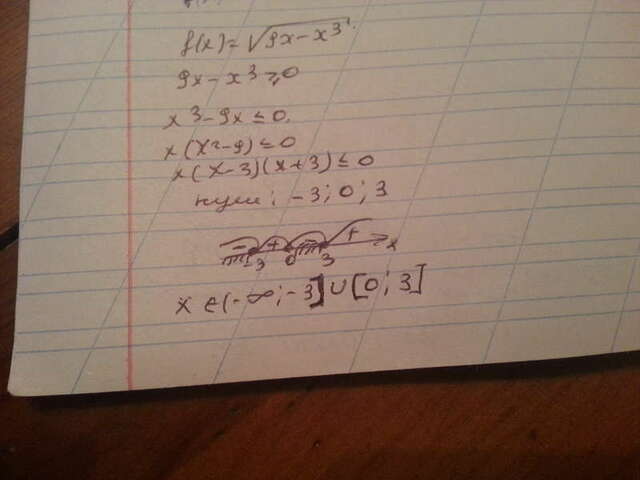 f(x)=√9x-x³
9x-x³≥0
x³-9x≤0.
x(x²-9)≤0
x(x-3)(x+3)≤0
нули: -3; 0; 3
- + - + 
-3 0 3 x
x∈(-∞;-3]∪[0;3]